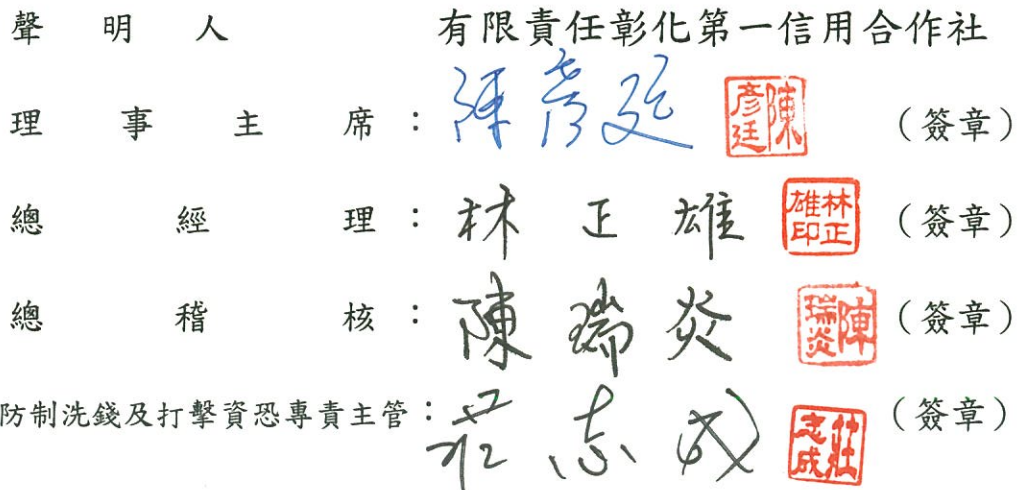 聲明人 有限責任彰化第一信用合作社
理事主席：陳彥廷 陳彥廷 （簽章）
總經理：林正雄 林正雄印 （簽章）
總稽核：陳瑞炎 陳瑞炎 （簽章）
防制洗錢及打擊資恐專責主管：莊志成 莊志成 （簽章）